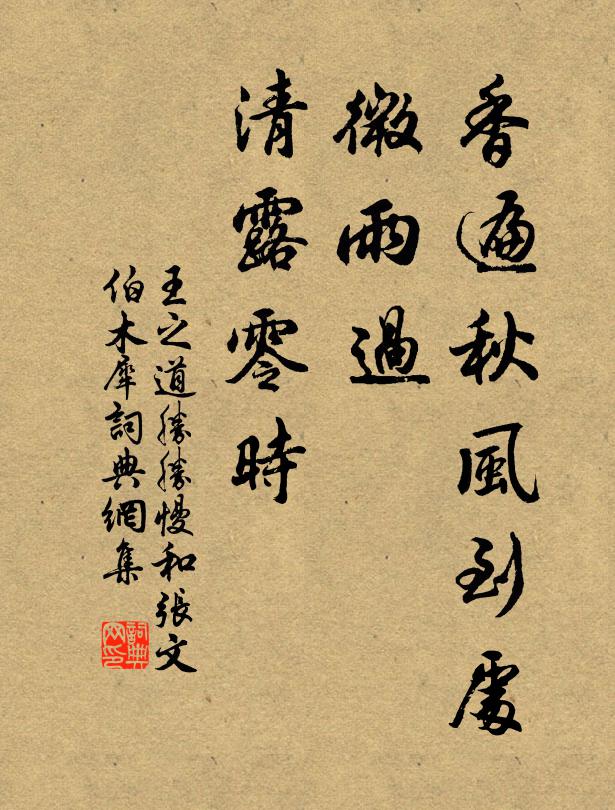 香遍秋風到處
微雨過
清露零時
王之道勝勝慢和張文
伯木犀詞典網集
詞典网印